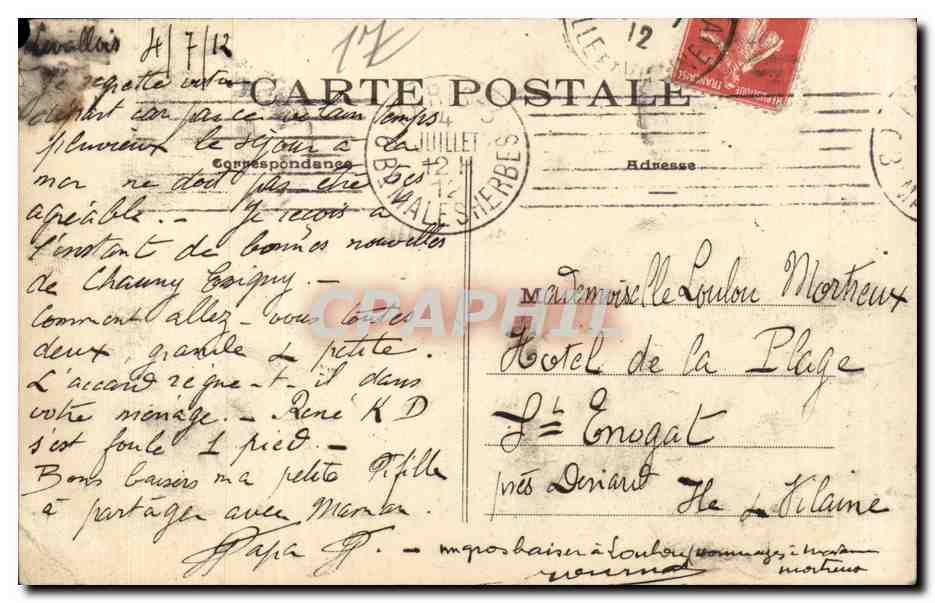 Levallois 4/7/12
Je regrette votre
départ car par ce vilain temps
pluvieux le séjour à la
mer ne doit pas être très
agréable. - Je reçois à
l'instant de bonnes nouvelles
de Chauny
Comment allez-vous toutes
deux, grande & petite.
L'accord règne-t-il dans
votre ménage. - René K D
s'est foulé 1 pied. -
Bons baisers ma petite Fifille
à partager avec Maman.
Papa
17
CARTE POSTALE
Correspondance
Adresse
PARIS
4
JUILLET
12 H
12
MALESHERBES
12
REPUBLIQUE FRANÇAISE
CRAPHIL
Mademoiselle Loulou Mortreux
Hotel de la Plage
St Enogat
près Dinard Ile & Vilaine
un gros baiser à Loulou, hommages à Madame
Mortreux